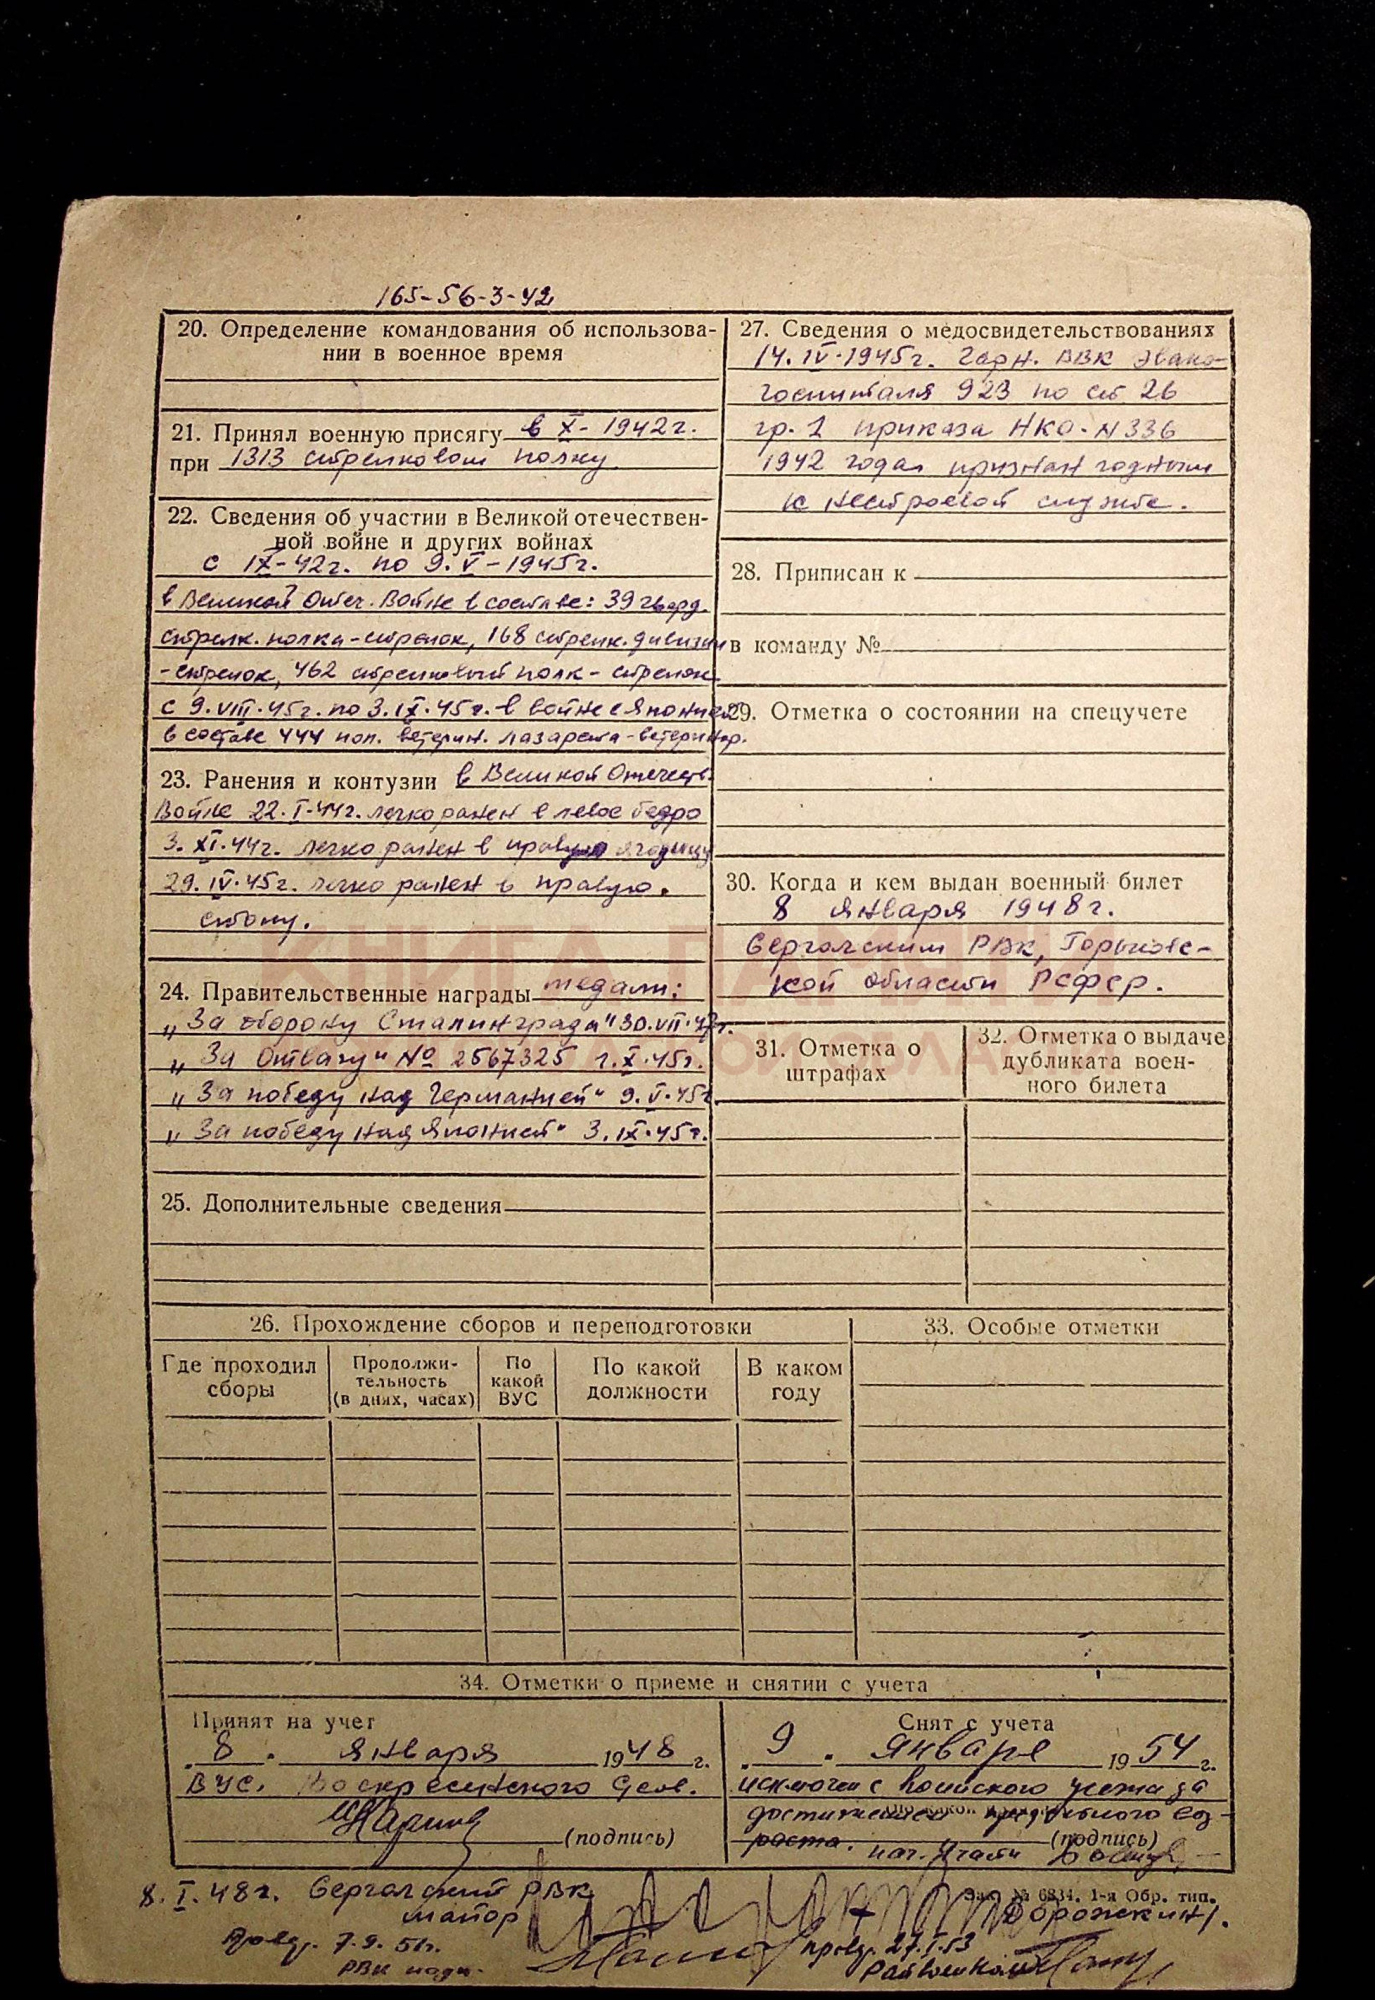 165-56-3-42
20. Определение командования об использова-
нии в военное время
21. Принял военную присягу в X - 1942 г.
при 1313 стрелковом полку
22. Сведения об участии в Великой отечествен-
ной войне и других войнах
с IX-42г. по 9. V-1945г.
в Великой Отеч. Войне в составе: 39 гвард.
стрелк. полка-стрелок, 168 стрелк. дивизии
-стрелок, 462 стрелковый полк - стрелок
с 9.VIII.45г. по 3.IX.45г. в войне с Японией
в составе 444 пол. ветерин. лазарета-ветеринар.
23. Ранения и контузии в Великой Отечеств.
Войне 22.I.44г. легко ранен в левое бедро
3. XI.44г. легко ранен в правую ягодицу
29. IV.45г. легко ранен в правую.
стопу.
24. Правительственные награды медали:
„За оборону Сталинграда" 30.VII.47г.
„За Отвагу" № 2567325 г.X.45г.
„За победу над Германией" 9.V.45г.
„За победу над Японией" 3.IX.45г.
25. Дополнительные сведения
27. Сведения о медосвидетельствованиях
14.IV.1945г. Гарн. ВВК Эвако-
госпиталя 923 по ст 26
гр. 1 приказа НКО-N336
1942 года признан годным
к нестроевой службе.
28. Приписан к
в команду №
29. Отметка о состоянии на спецучете
30. Когда и кем выдан военный билет
8 января 1948г.
Сергачским РВК, Горьковс-
кой области РСФСР.
31. Отметка о
штрафах
32. Отметка о выдаче
дубликата воен-
ного билета
КНИГА ПАМЯТИ
26. Прохождение сборов и переподготовки
Где проходил
сборы
Продолжи-
тельность
(в днях, часах)
По
какой
ВУС
По какой
должности
В каком
году
33. Особые отметки
34. Отметки о приеме и снятии с учета
Принят на учет
8 . января 1948 г.
ВУС. Воскресенского Сель.
(подпись)
Снят с учета
9 . января 1954 г.
исключен с воинского учета за
достижением предельного воз-
раста. нач. 4 части
(подпись)
Зак. № 6834. 1-я Обр. тип.
8.I.48г. Сергачский РВК
майор Дорожкин.
7.9.51г.
РВК
27.I.53
Райвоенком